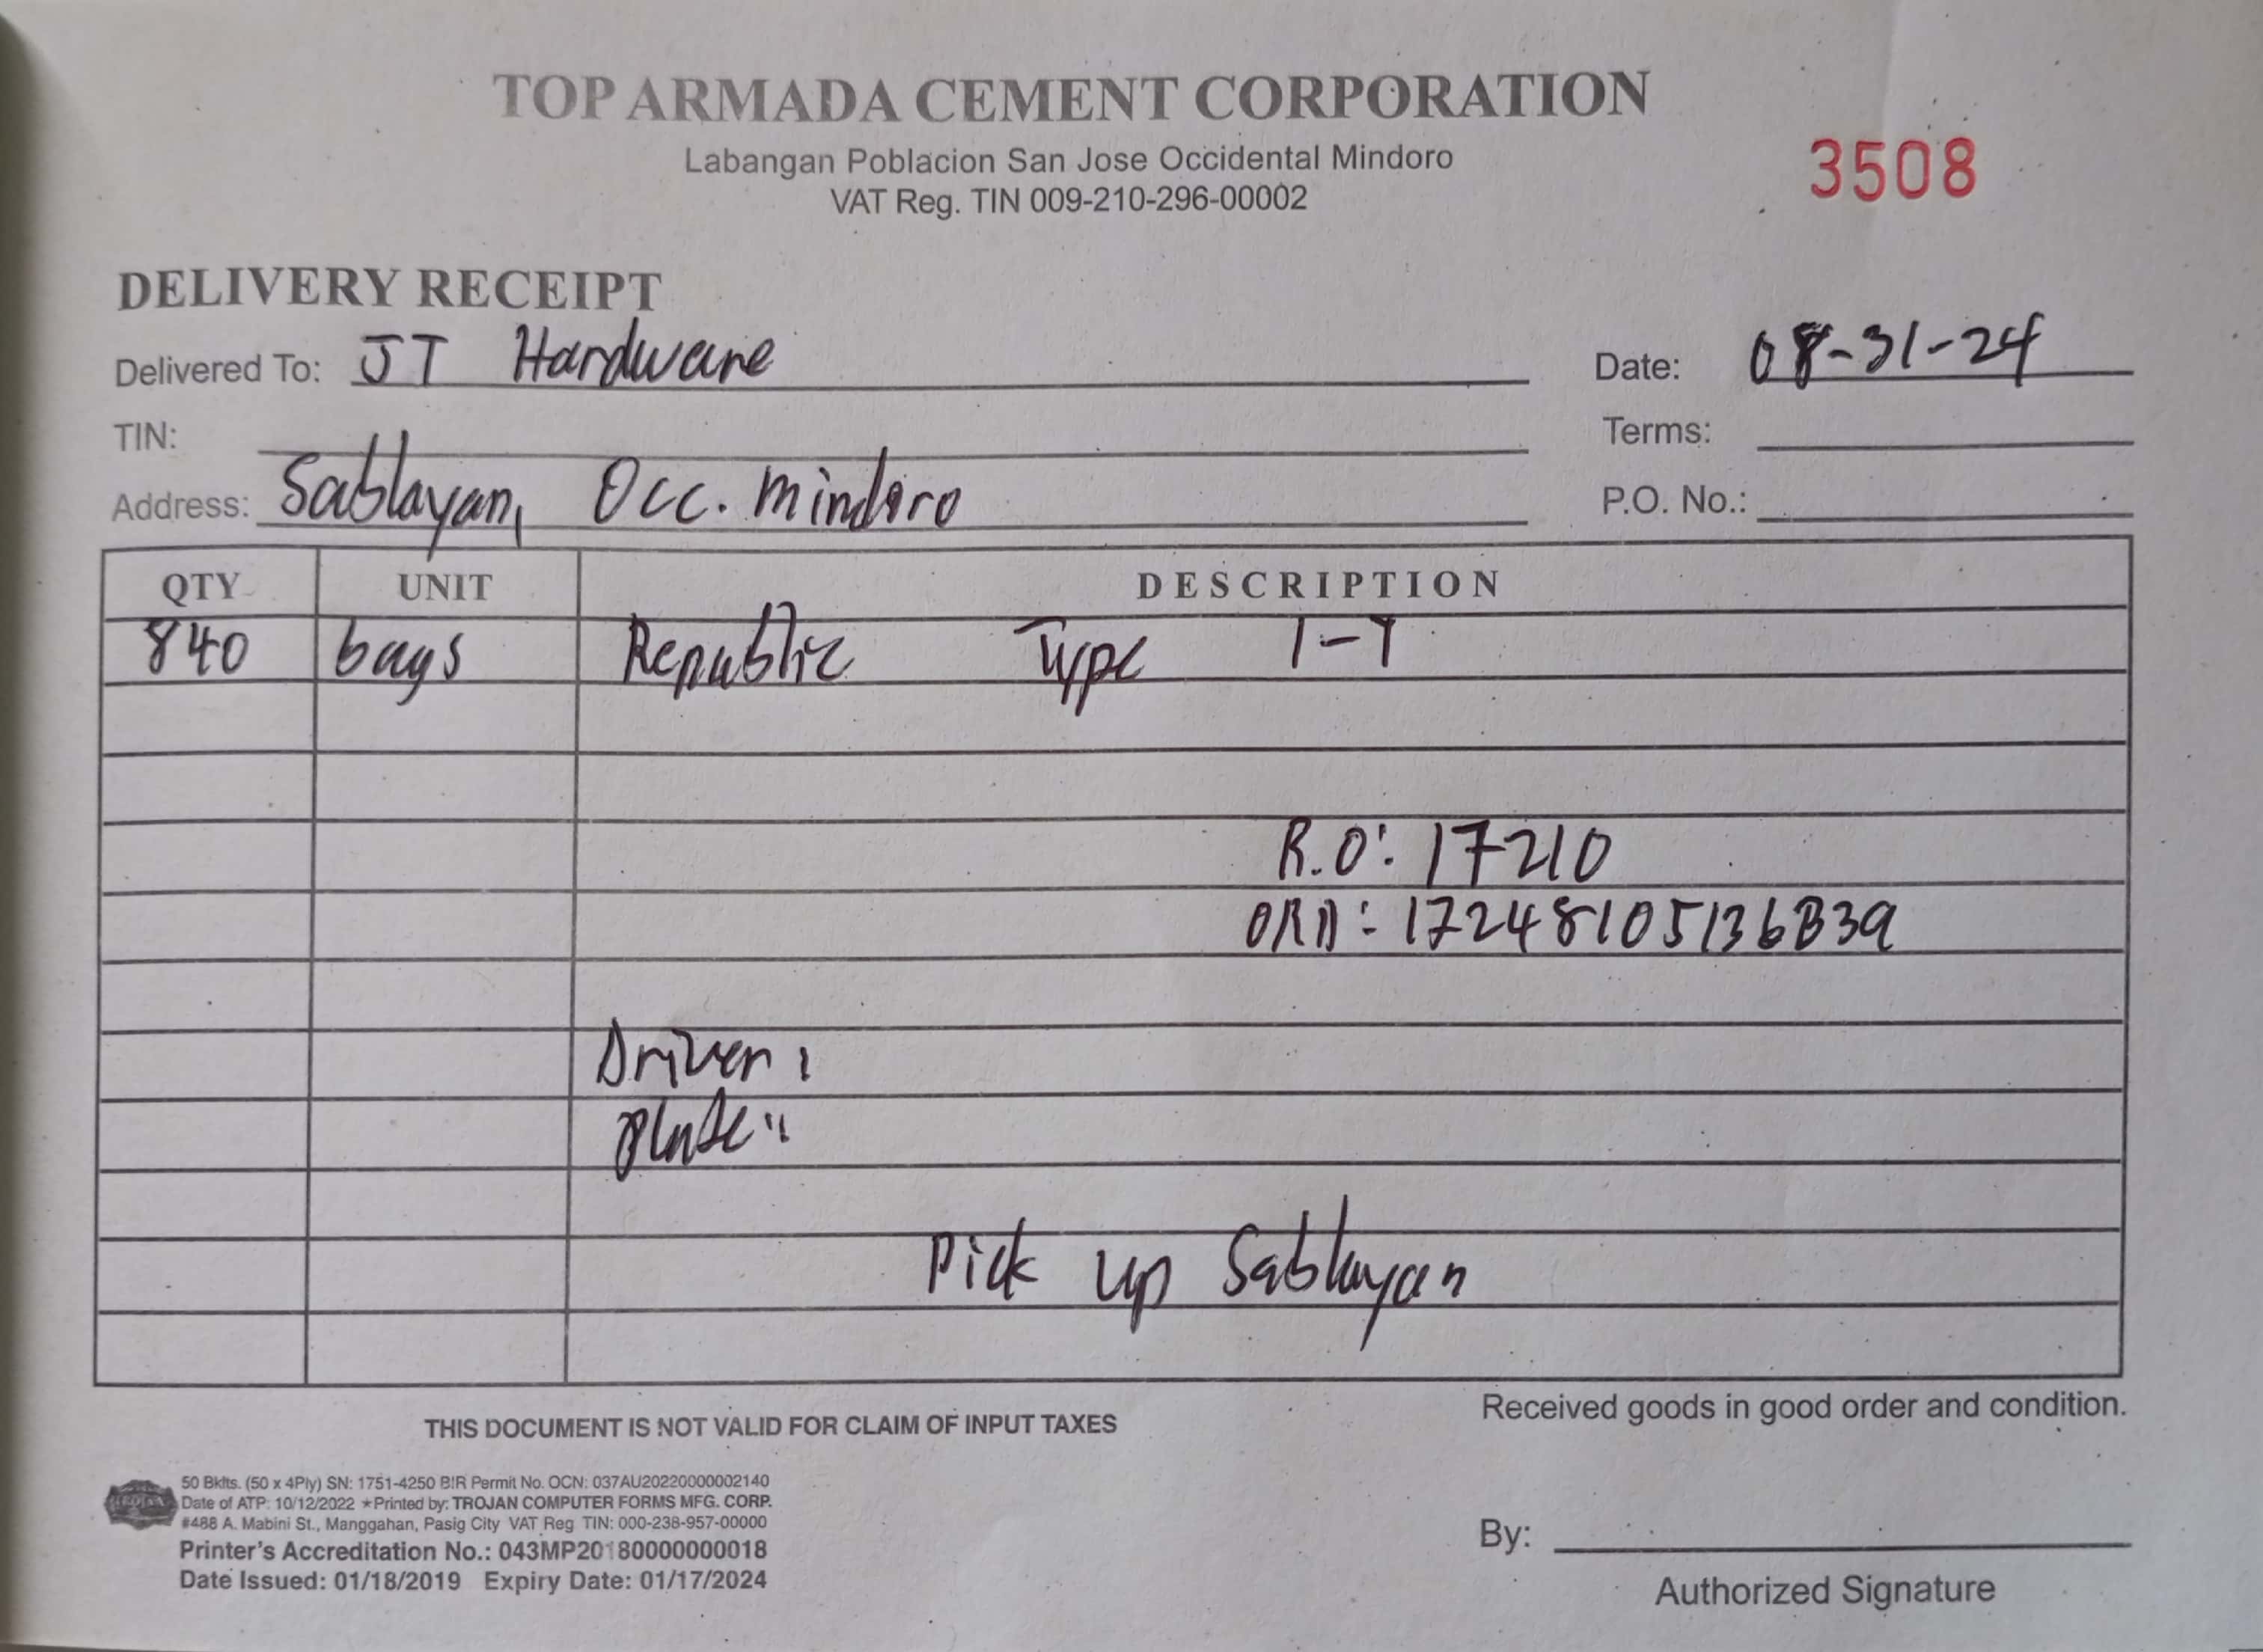 TOP ARMADA CEMENT CORPORATION
Labangan Poblacion San Jose Occidental Mindoro
VAT Reg. TIN 009-210-296-00002
3508
DELIVERY RECEIPT
Delivered To: JT Hardware
Date: 08-31-24
TIN:
Terms:
Address: Sablayan, Occ. Mindoro
P.O. No.:
QTY UNIT DESCRIPTION
840 bags Republic Type 1-T
R.O: 17210
17248105136B39
Driver:
Plate:
Pick up Sablayan
THIS DOCUMENT IS NOT VALID FOR CLAIM OF INPUT TAXES
Received goods in good order and condition.
50 Bklts. (50 x 4Ply) SN: 1751-4250 BIR Permit No. OCN: 037AU20220000002140
Date of ATP: 10/12/2022 ★Printed by: TROJAN COMPUTER FORMS MFG. CORP.
#488 A. Mabini St., Manggahan, Pasig City VAT Reg TIN: 000-238-957-00000
Printer's Accreditation No.: 043MP20180000000018
Date Issued: 01/18/2019 Expiry Date: 01/17/2024
By:
Authorized Signature